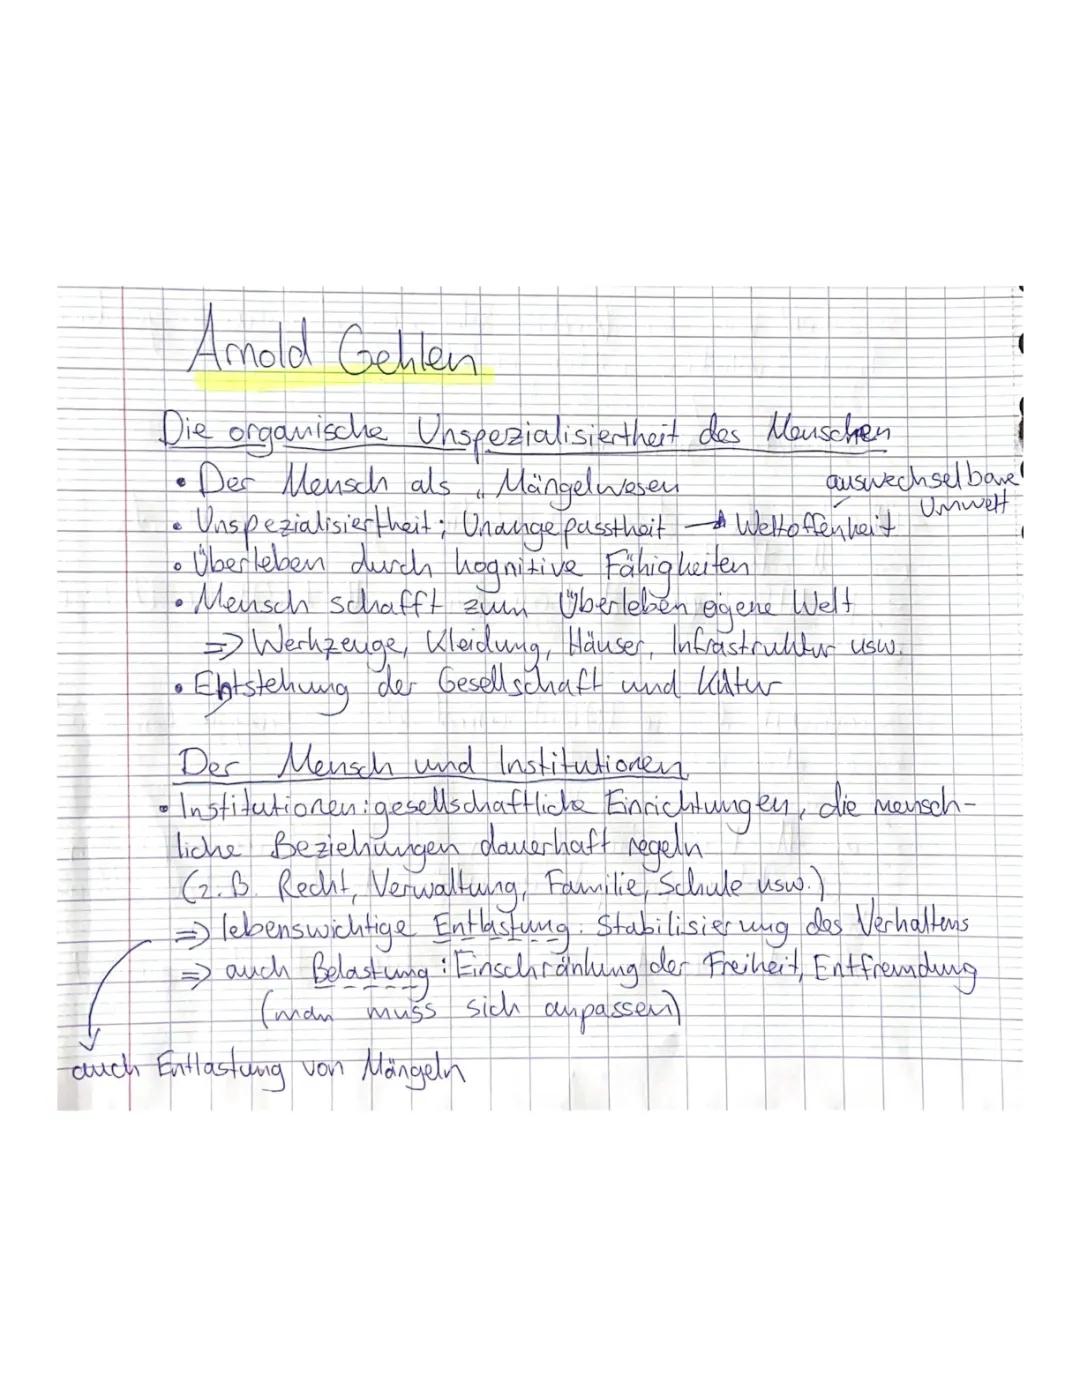 Arnold Gehlen
Die organische Unspezialisiertheit des Menschen
• Der Mensch als „Mängelwesen
auswechselbare
Umwelt
• Unspezialisiertheit; Unangepasstheit → Weltoffenheit
• Überleben durch kognitive Fähigkeiten
• Mensch schafft zum Überleben eigene Welt
=> Werkzeuge, Kleidung, Häuser, Infrastruktur usw.
• Entstehung der Gesellschaft und Kultur
Der Mensch und Institutionen
• Institutionen: gesellschaftliche Einrichtungen, die mensch-
liche Beziehungen dauerhaft regeln
(z.B. Recht, Verwaltung, Familie, Schule usw.)
=> lebenswichtige Entlastung. Stabilisierung des Verhaltens
=> auch Belastung: Einschränkung der Freiheit, Entfremdung
(man muss sich anpassen)
auch Entlastung von Mängeln